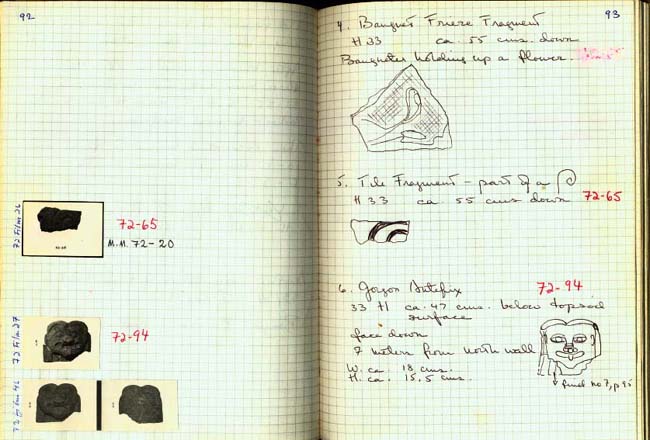 92
72 Film 26
72-65
M.M. 72-20
72 Film 27
72-94
93
4. Banquet Frieze Fragment
H 33 ca. 55 cms. down
Banqueter holding up a flower.
5. Tile Fragment - part of a
H 33 ca 55 cms down 72-65
6. Gorgon Antefix 72-94
33 H ca. 47 cms. below topsoil
surface
face down
7 meters from north wall
W. ca. 18 cms.
H. ca. 15,5 cms.
find no 7, p 95